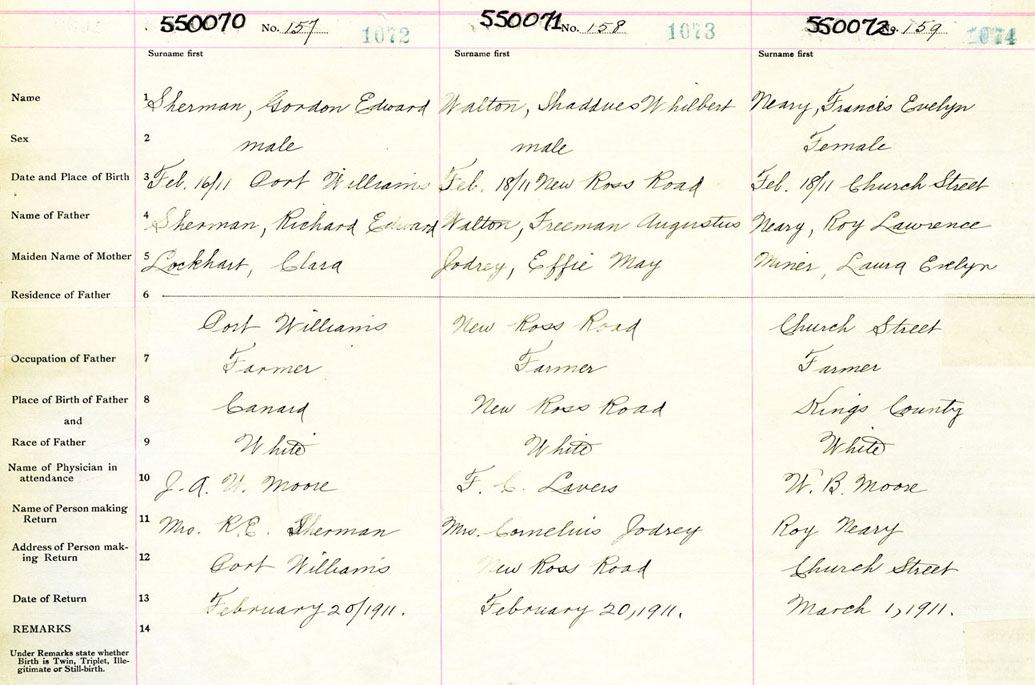 550070 No. 157 1072 550071 No. 158 1073 550072 No. 159 1074
Surname first Surname first Surname first
Name 1 Sherman, Gordon Edward Walton, Shaddues Whilbert Neary, Francis Evelyn
Sex 2 male male Female
Date and Place of Birth 3 Feb. 16/11 Port Williams Feb. 18/11 New Ross Road Feb. 18/11 Church Street
Name of Father 4 Sherman, Richard Edward Walton, Freeman Augustus Neary, Roy Lawrence
Maiden Name of Mother 5 Lockhart, Clara Jodrey, Effie May Miner, Laura Evelyn
Residence of Father 6
Port Williams New Ross Road Church Street
Occupation of Father 7 Farmer Farmer Farmer
Place of Birth of Father 8 Canard New Ross Road Kings County
and
Race of Father 9 White White White
Name of Physician in
attendance 10 J. A. W. Moore F. C. Lavers W. B. Moore
Name of Person making
Return 11 Mrs. R.E. Sherman Mrs. Cornelius Jodrey Roy Neary
Address of Person mak-
ing Return 12 Port Williams New Ross Road Church Street
Date of Return 13 February 20/1911. February 20, 1911. March 1, 1911.
REMARKS 14
Under Remarks state whether
Birth is Twin, Triplet, Ille-
gitimate or Still-birth.